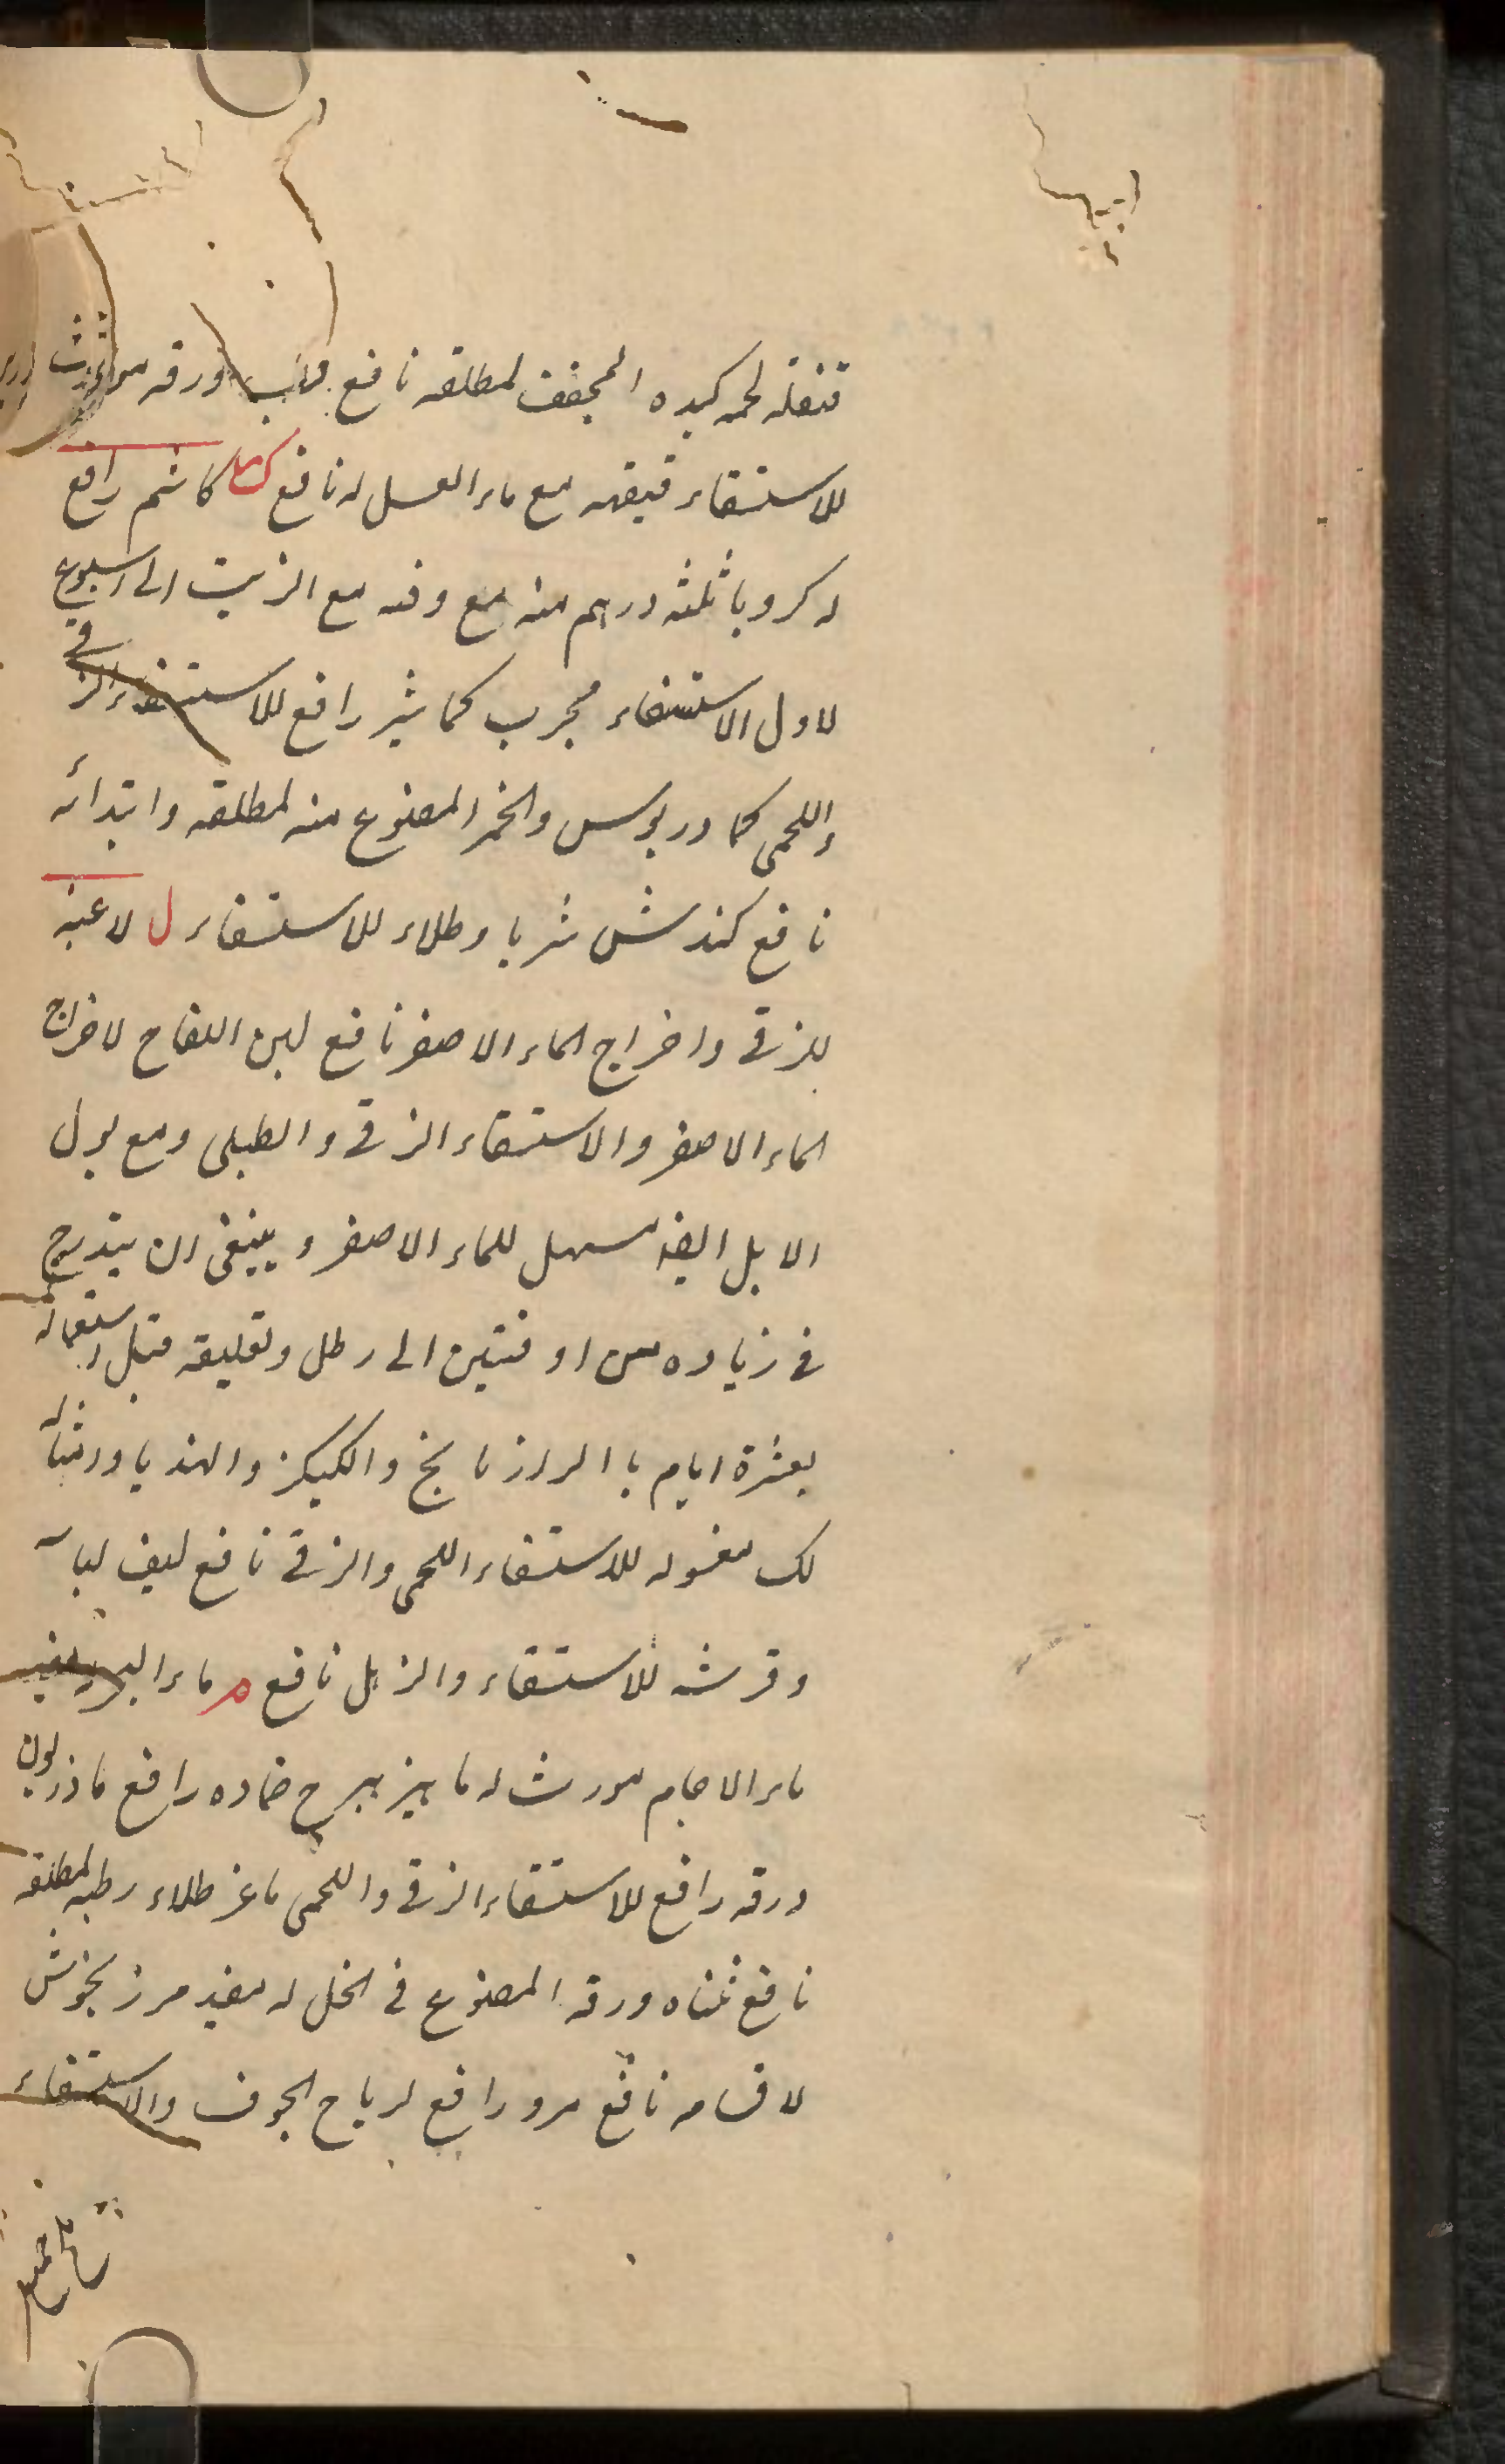 قنفذ لحمه كبده المجفف لمطلقه نافع ورقه مورث
للاستسقاء قيقهر مع ماء العسل له نافع ك كاشم رافع
له كرويا ثلثه درهم منه مع وقيه مع الزيت الى اسبوع
لاول الاستسقاء مجرب كماشير رافع للاستسقاء الزقى
واللحمى كمادريوس والخمر المصنوع منه لمطلقه وابتدائه
نافع كندش شربا وطلاء للاستسقاء ل لاعيه
للزقى واخراج الماء الاصفر نافع لبن اللقاح لاخراج
الماء الاصفر والاستسقاء الزقى والطبلى ومع بول
الابل ايضا مسهل للماء الاصفر وينبغى ان يتدرج
فى زياده من اوقيتين الى رطل وتعليقه قبل استعماله
بعشرة ايام با الرازيانج والكيكز والهنديا وامثاله
لك مغسوله للاستسقاء اللحمى والزقى نافع ليف لباسه
وفرشه للاستسقاء والزبل نافع م ماء البحر مفيد
ماء الاجام مورث له ماهيزهرج ضماده رافع ماذريون
ورقه رافع للاستسقاء الزقى واللحمى ماعز طلاء رطبه لمطلقه
نافع مثناه ورقه المصنوع فى الخل له مفيد مرزنجوش
لاقسامه نافع مرو رافع لرياح الجوف والاستسقاء